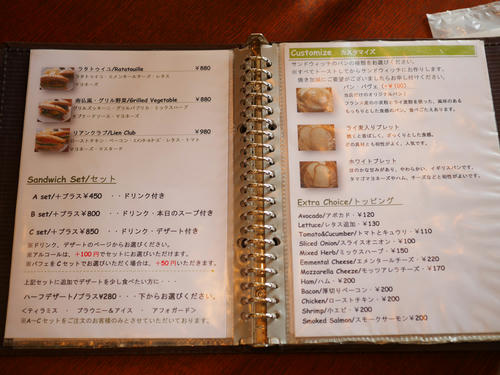 ラタトゥイユ/Ratatouille ￥880
ラタトゥイユ・エメンタールチーズ・レタス
マヨネーズ
南仏風・グリル野菜/Grilled Vegetable ￥880
マヨネーズ
リアンクラブ/Lien Club ￥980
ローストチキン・ベーコン・エメンタール・レタス・トマト
マヨネーズ・マスタード
Sandwich Set/セット
A set/＋プラス￥450 ・・ドリンク付き
B set/＋プラス￥800 ・・ドリンク・本日のスープ付き
C set/＋プラス￥850 ・・ドリンク・デザート付き
※ドリンク、デザートのページからお選びください。
※アルコールは、＋100円でセットにお付けいただけます。
※パフェをCセットでお選びいただく場合は、＋50円いただきます。
上記セットに追加でデザートを少し食べたい方に・・・
ハーフデザート/プラス¥280・・・下からお選びください。
<ティラミス ・ ブラウニー＆アイス ・ アフォガード>
※A～Cセットをご注文のお客様のみとさせていただいております。
Customize カスタマイズ
サンドウィッチのパンの種類をお選びください。
※すべてトーストしてからサンドウィッチにお作りします。
焼き加減にご要望がございましたらお申し付けください。
パン・パヴェ (＋￥100)
当店だけのオリジナルパン
フランス産の小麦粉とライ麦粉を使った、風味のある
もっちりとした食感のパン。食べごたえあります。
ライ麦入りブレット
焼くと香ばしく、さっくりとした食感。
どの具材とも相性がよく、人気です。
ホワイトブレット
ほのかな甘みがあり、やわらかい、イギリスパンです。
タマゴマヨネーズやハム、チーズなどと相性がよいです。
Extra Choice/トッピング
Avocado/アボカド・￥120
Lettuce/レタス追加・￥130
Tomato&Cucumber/トマトとキュウリ・￥110
Sliced Onion/スライスオニオン・￥100
Mixed Herb/ミックスハーブ・￥150
Emmental Cheese/エメンタールチーズ・￥220
Mozzarella Cheeze/モッツアレラチーズ・￥170
Ham/ハム・￥200
Bacon/厚切りベーコン・￥200
Chicken/ローストチキン・￥200
Shrimp/小エビ・￥200
Smoked Salmon/スモークサーモン￥200